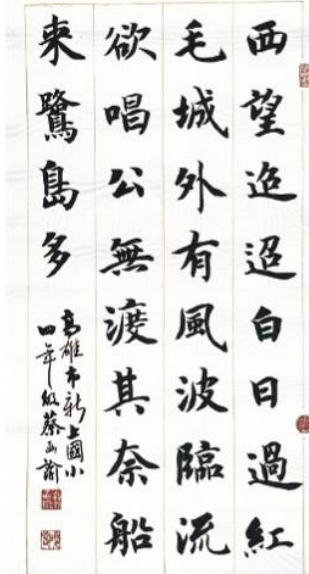 西望迢迢白日過紅
毛城外有風波臨流
欲唱公無渡其奈船
来鷺島多
高雄市新上國小
四年級蔡諭